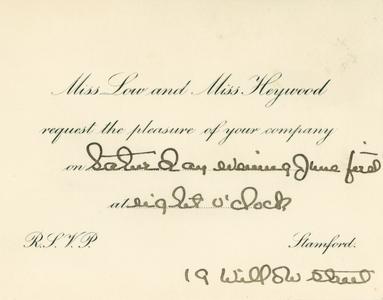 Miss Low and Miss Heywood
request the pleasure of your company
on Saturday evening June first
at eight o'clock
R.S.V.P. Stamford.
19 Willow Street